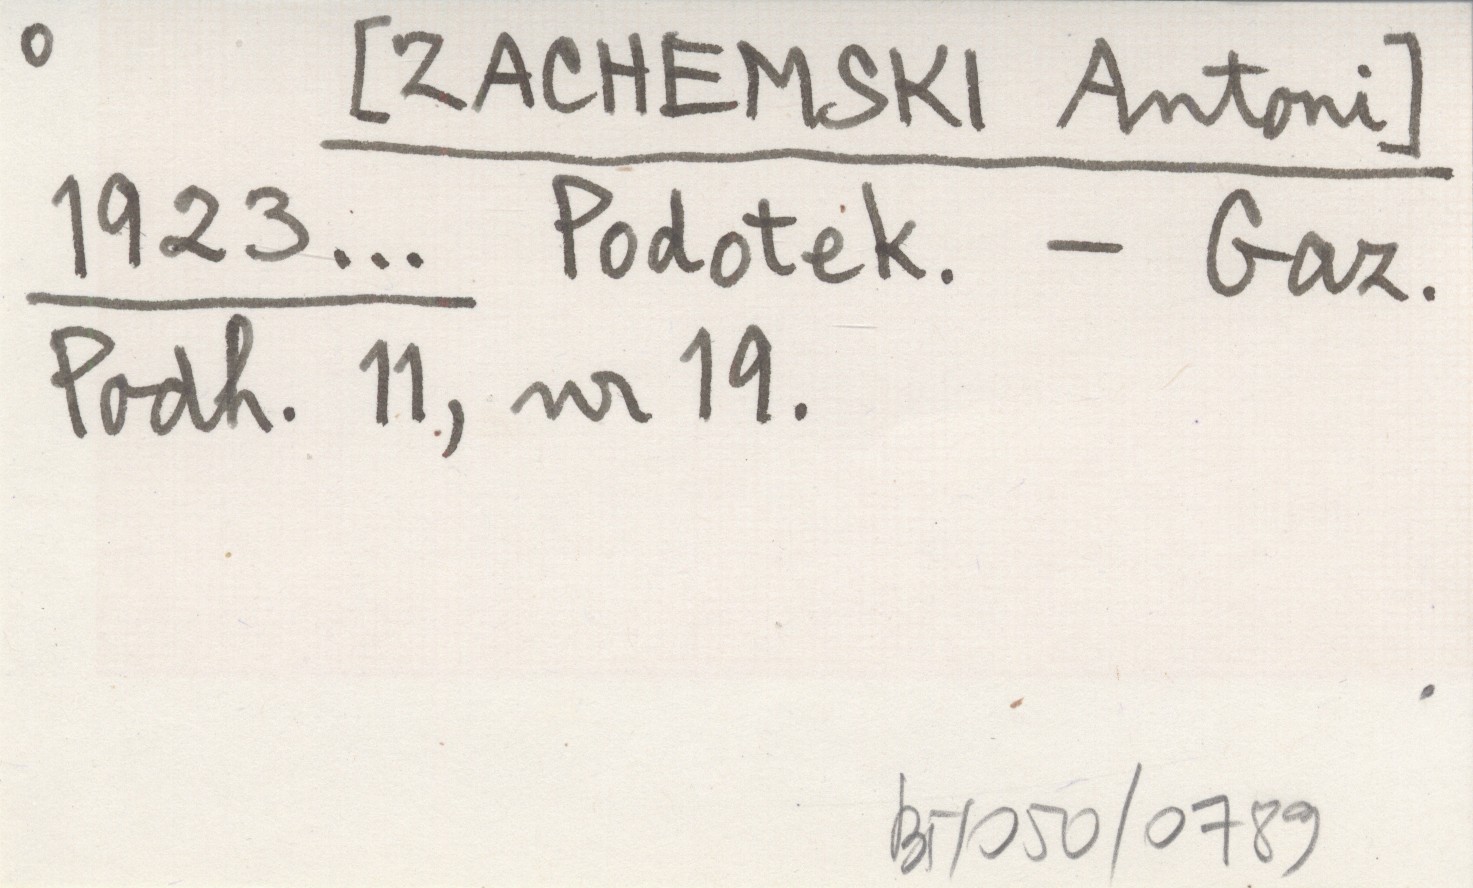 o [ZACHEMSKI Antoni]
1923... Podotek. - Gaz.
Podh. 11, nr 19.
BT/050/0789